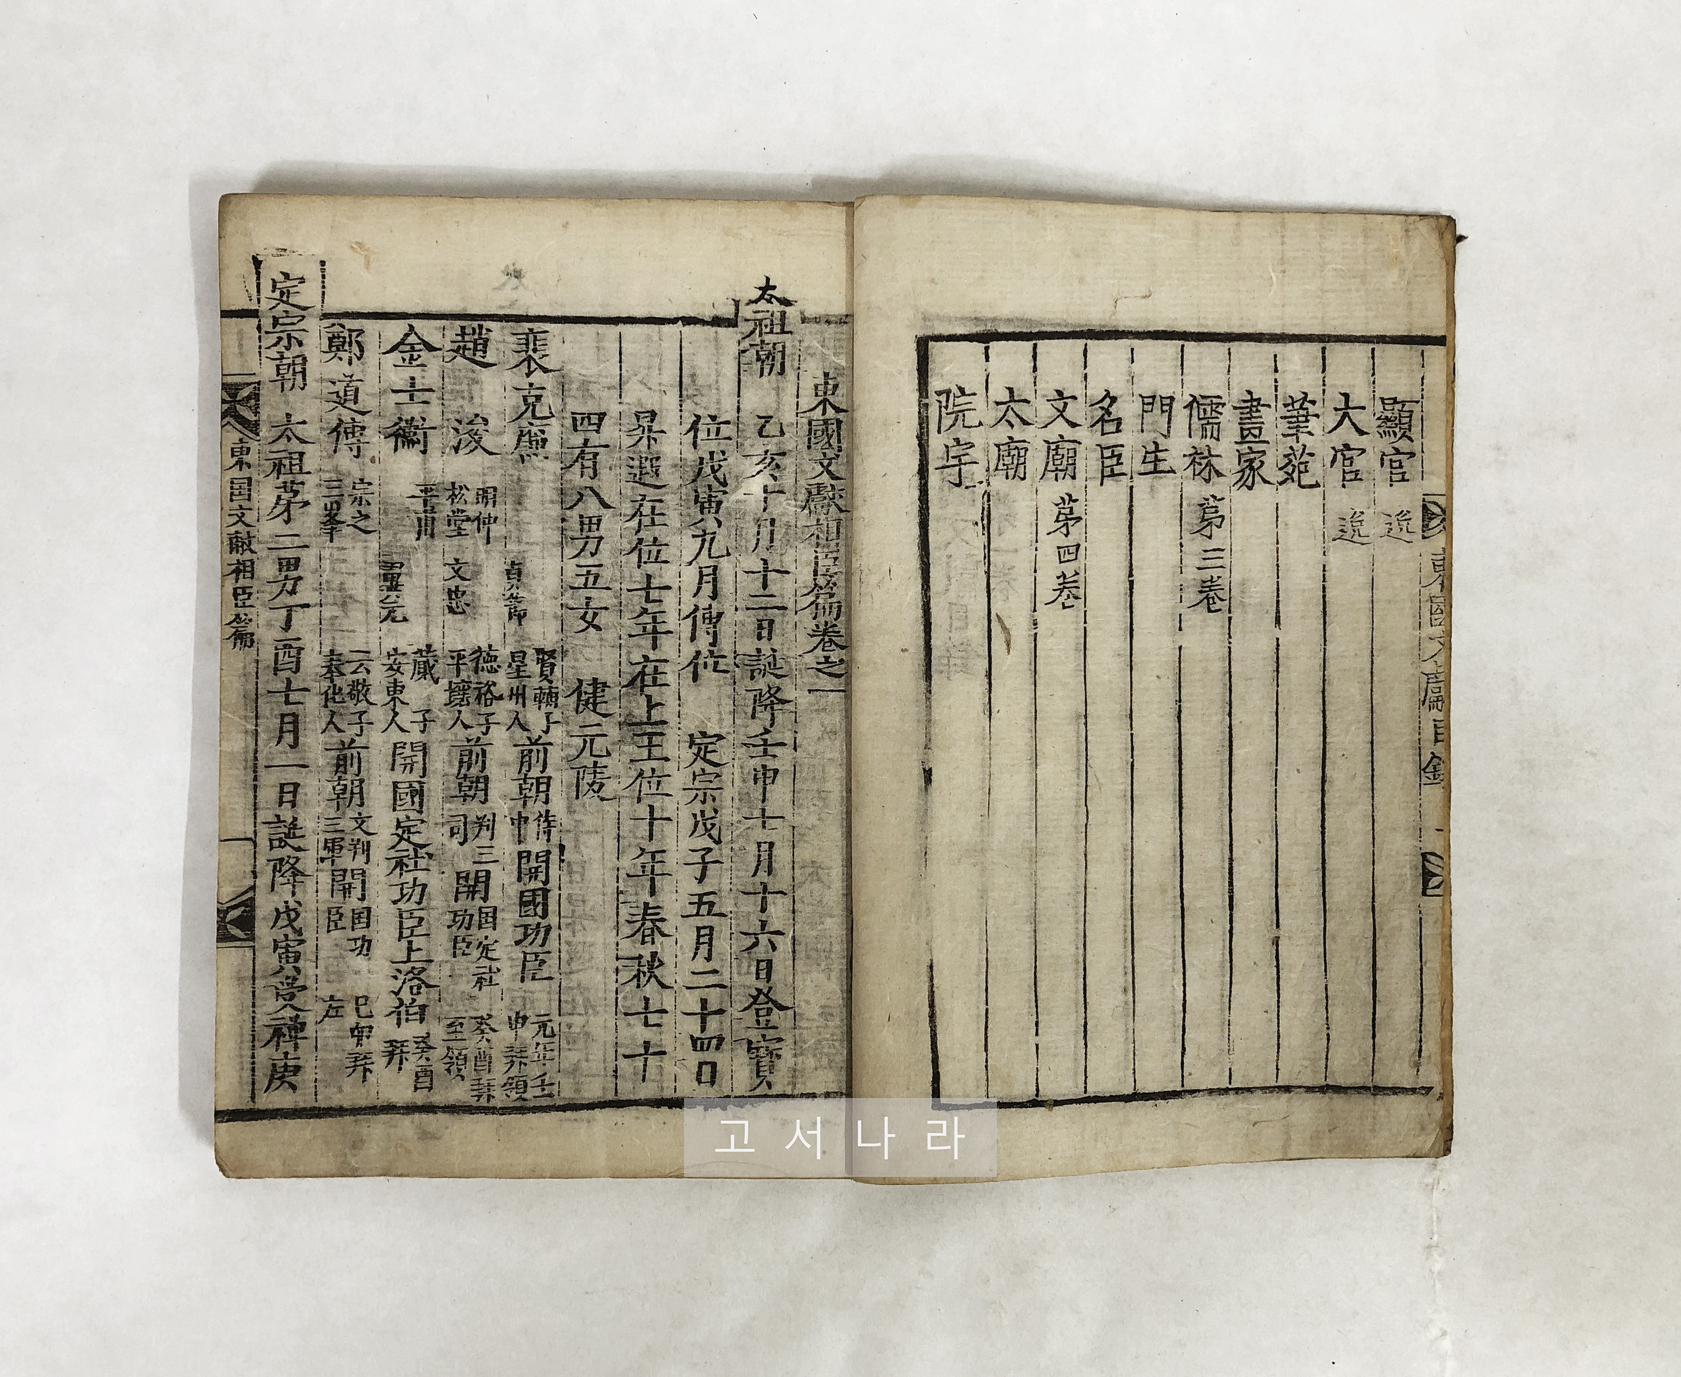 東國文獻目錄
顯官 逆
大官 逆
筆苑
畫家
儒林 第三卷
門生
名臣
文廟 第四卷
太廟
院宇
東國文獻相臣篇卷之一
太祖朝 乙亥十月十二日誕降壬申七月十六日登寶
位戊寅九月傳位 定宗戊子五月二十四日
昇遐在位七年在上王位十年春秋七十
四有八男五女 健元陵
裴克廉 貞節 賢輔子 星州人 前朝 侍中 開國功臣 元年壬申拜領
趙浚 明仲 松堂 文忠 德裕子 平壤人 前朝 判三司 開國定社功臣 癸酉拜 至領
金士衡 平甫 翼元 蕆子 安東人 開國定社功臣上洛伯 癸酉拜
鄭道傳 宗之 三峯 云敬子 奉化人 前朝 文判三軍 開國功臣 己卯拜左
定宗朝 太祖第二男丁酉七月一日誕降戊寅受禪庚
東國文獻相臣篇
고서나라